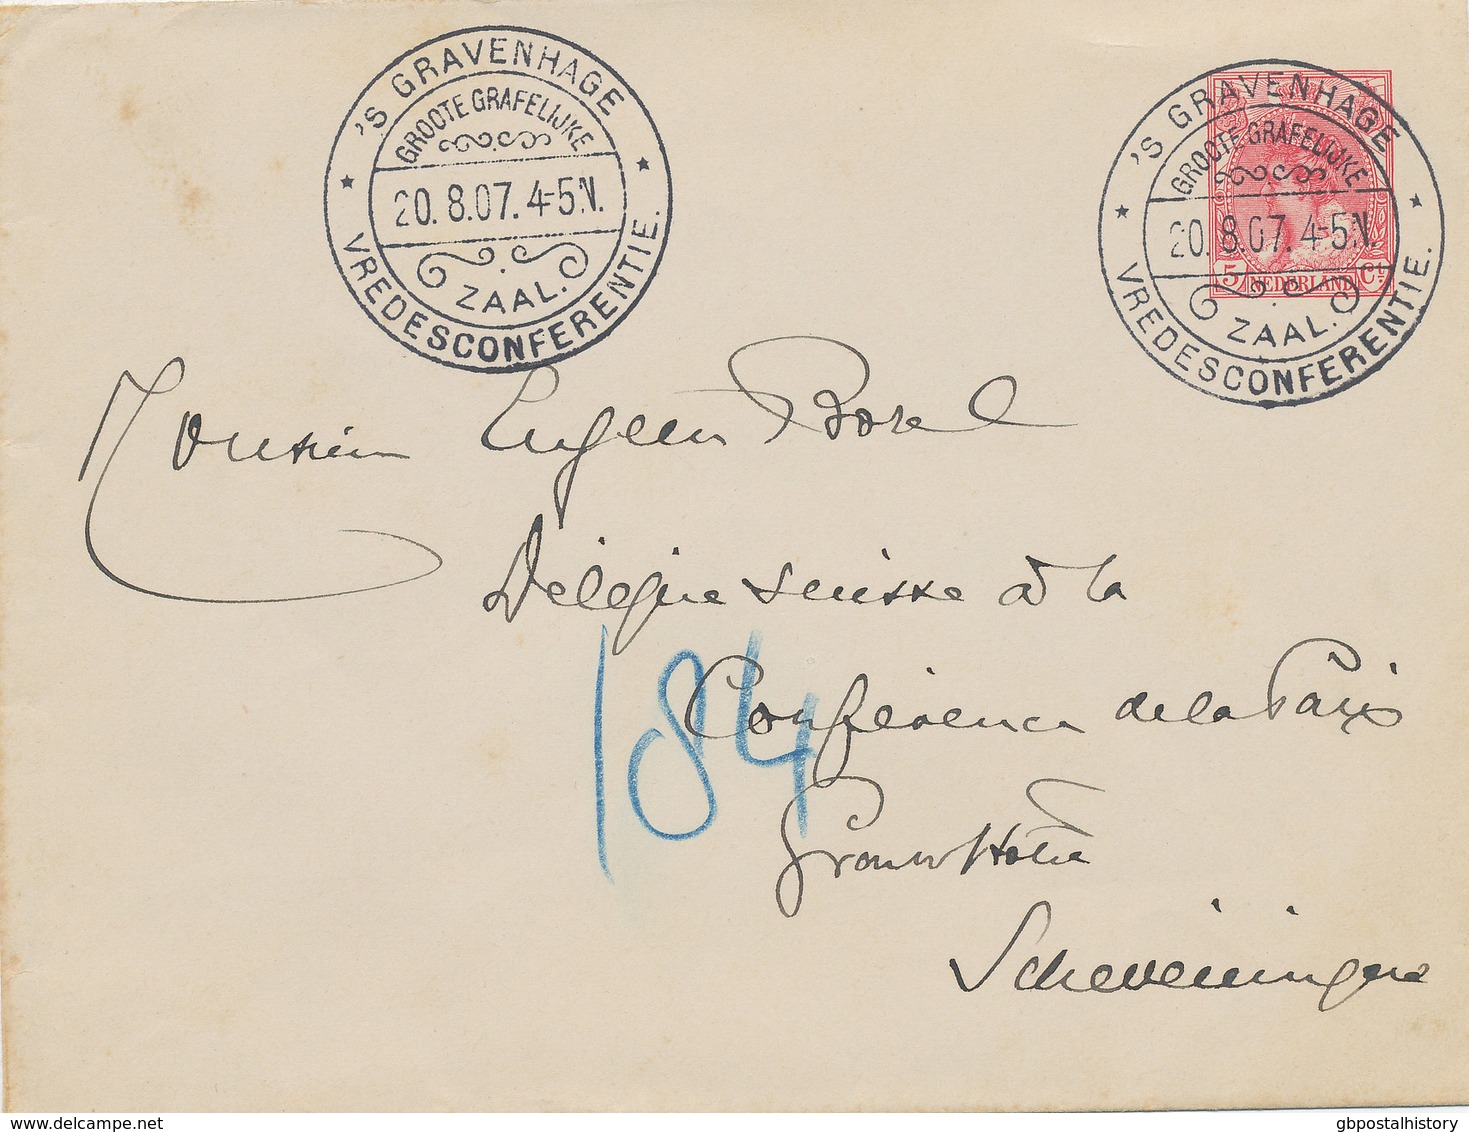 'S GRAVENHAGE
GROOTE GRAFELIJKE
20.8.07. 4-5N.
ZAAL.
VREDESCONFERENTIE.
'S GRAVENHAGE
GROOTE GRAFELIJKE
20.8.07. 4-5N.
ZAAL.
VREDESCONFERENTIE.
5 NEDERLAND Ct
Monsieur Eugeen Borel
Délégué suisse à la
184
Conférence de la Paix
Grand Hotel
Scheveningen
gbpostalhistory